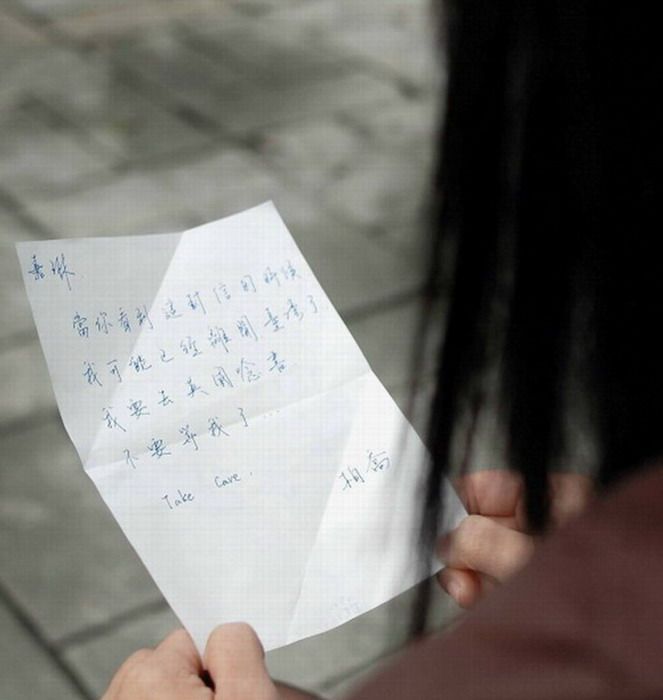 嘉琳
當你看到這封信的時候
我可能已經離開臺灣了
我要去英國唸書
不要等我了...
Take Care.
柏喬